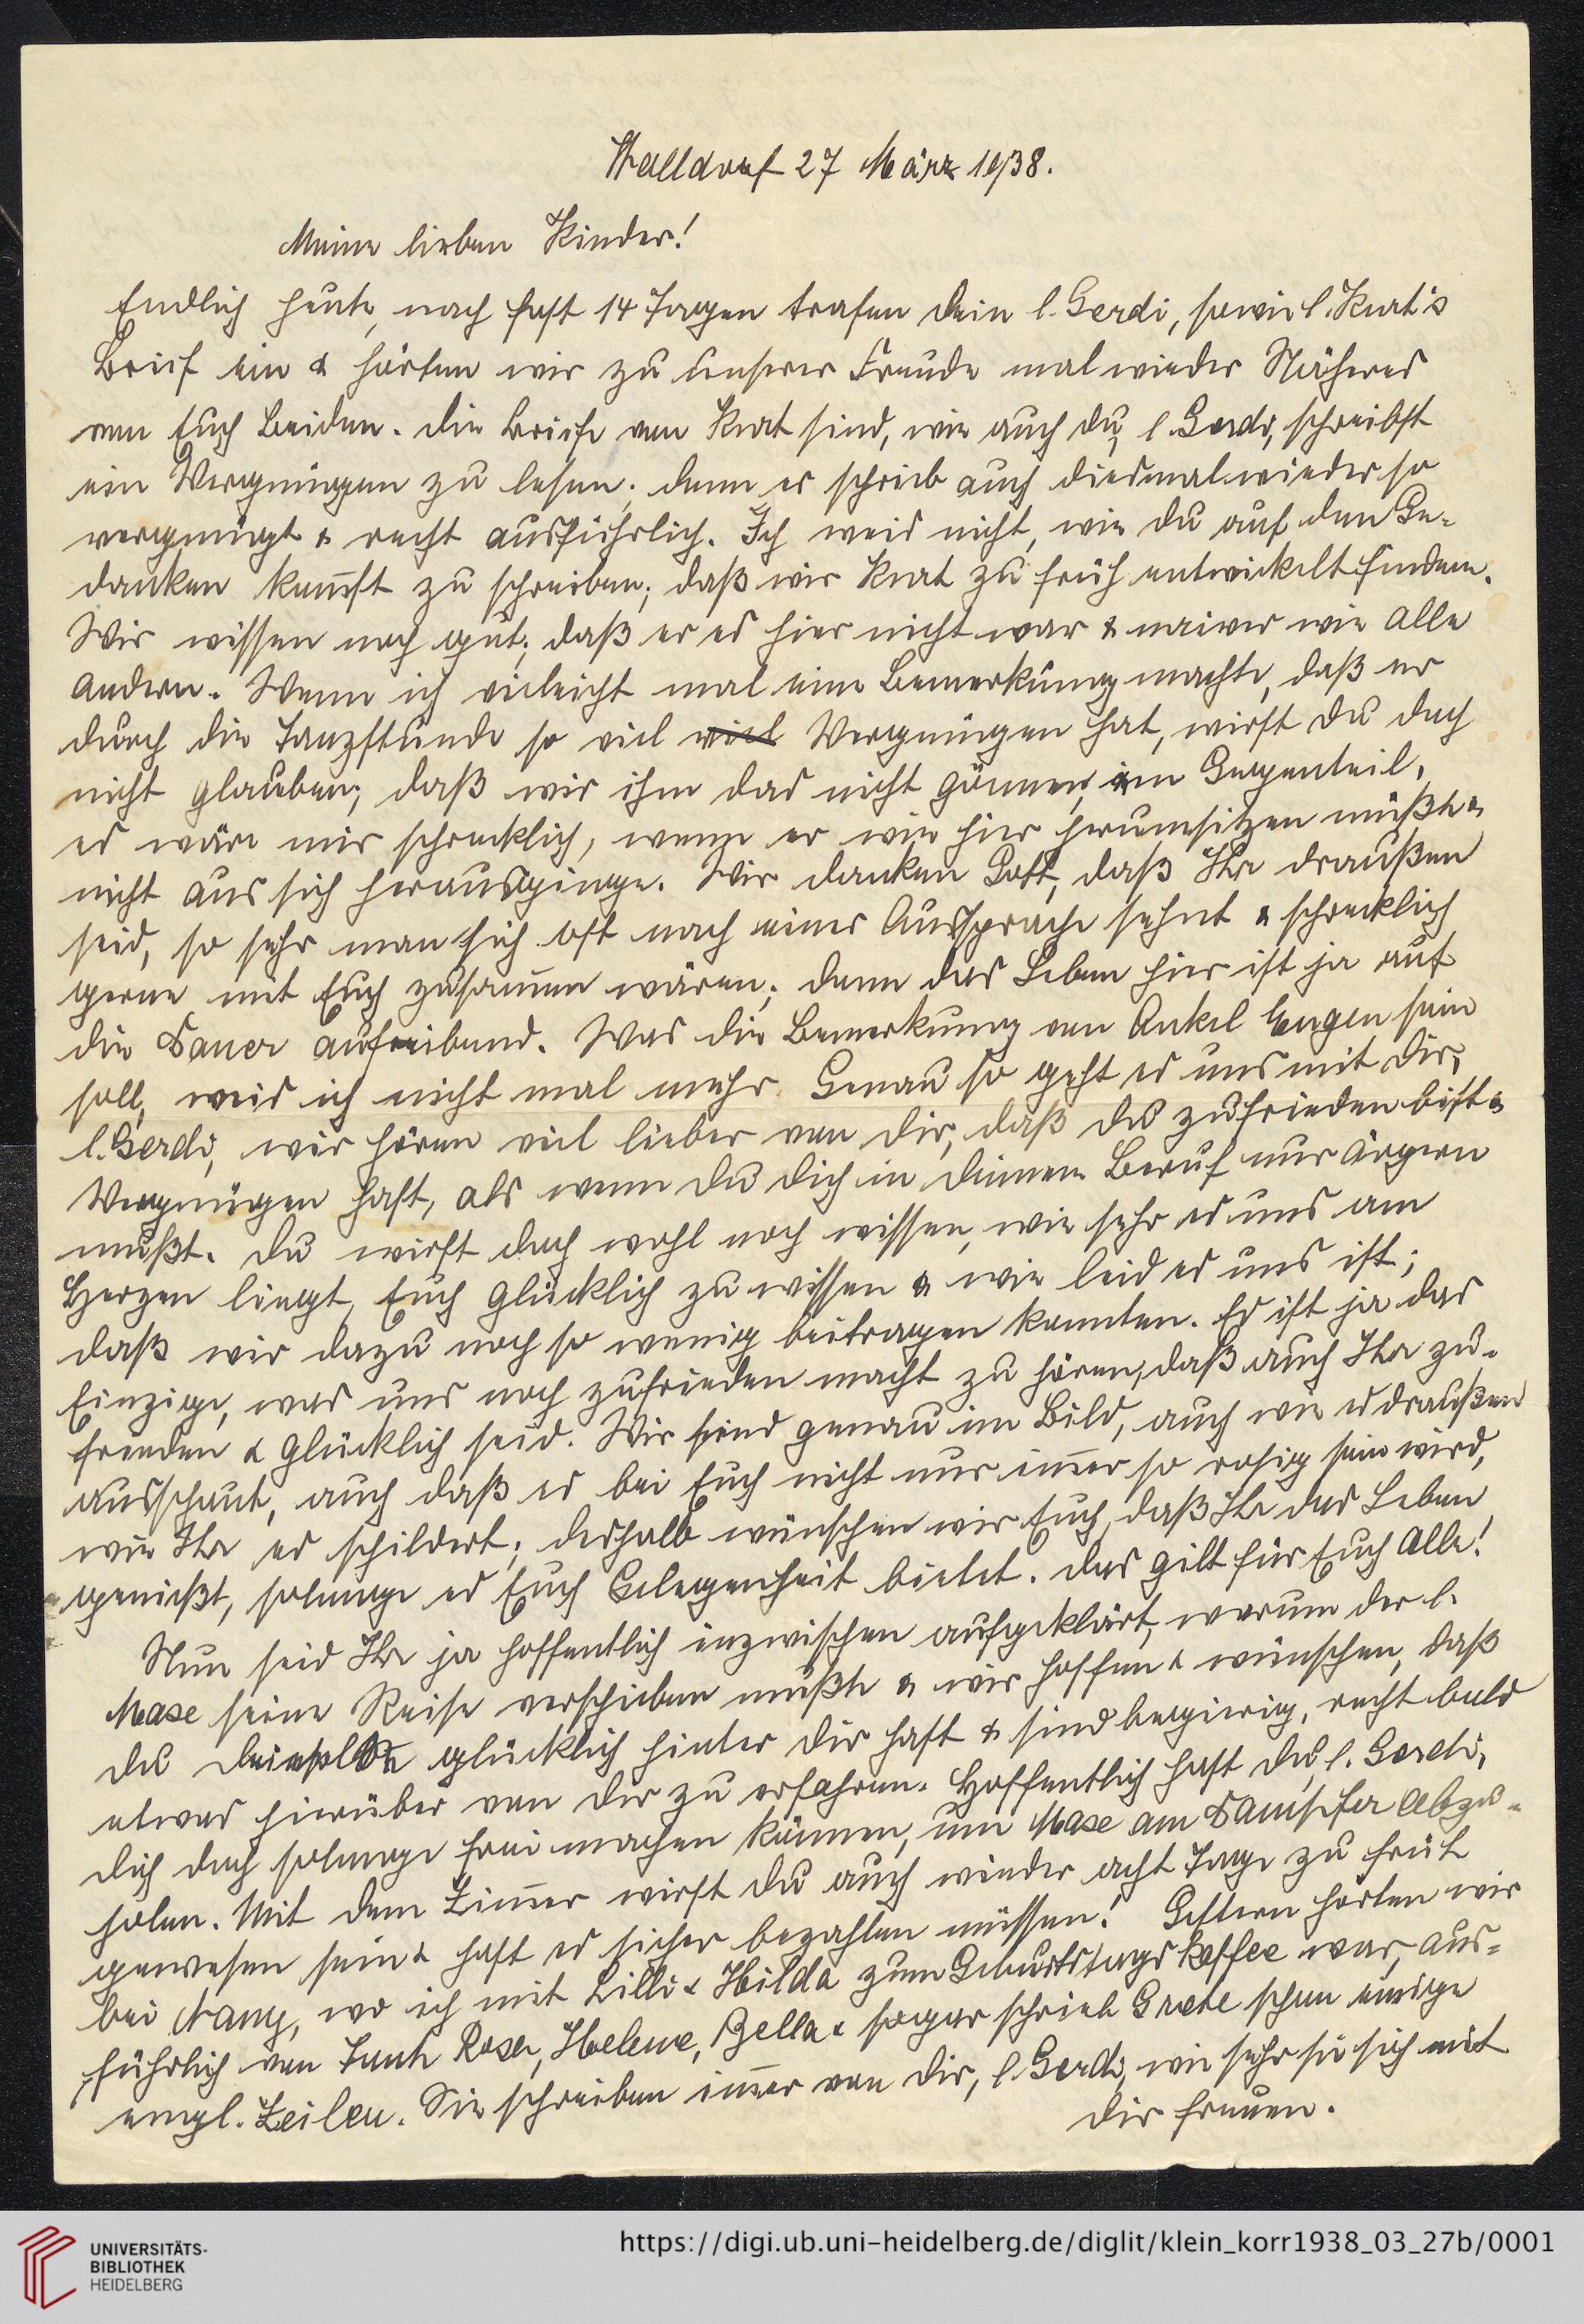 Walldorf 27 März 1938.
Meine lieben Kinder!
Endlich heute, nach fast 14 Tagen trafen dein l. Gerdi, sowie l. Kurt's
Brief ein & hörten wir zu unserer Freude mal wieder Näheres
von Euch Beiden. Die Briefe von Kurt sind, wie auch du, l. Gerdi, schreibst
ein Vergnügen zu lesen; denn er schrieb auch diesmal wieder so
vergnügt & recht ausführlich. Ich weis nicht, wie du auf den Ge-
danken kom̅st zu schreiben, daß wir Kurt zu früh entwickelt finden.
Wir wissen noch gut, daß er es hier nicht war & naiver wie alle
andern. Wenn ich vieleicht mal eine Bemerkung machte, daß er
durch die Tanzstunde so viel viel Vergnügen hat, wirst du doch
nicht glauben, daß wir ihm das nicht gönnen, im Gegenteil,
es wäre mir schrecklich, wenn er wie hier herumsitzen müßte &
nicht aus sich herausginge. Wir danken Gott, daß Ihr draußen
seid, so sehr man sich oft nach einer Aussprache sehnt & schrecklich
gerne mit Euch zusam̅en wären; denn das Leben hier ist ja auf
die Dauer aufreibend. Was die Bemerkung von Onkel Eugen sein
soll, weis ich nicht mal mehr. Genau so geht es uns mit dir,
l. Gerdi, wir hören viel lieber von dir, daß du zufrieden bist &
Vergnügen hast, als wenn du dich in deinem Beruf nur ärgern
mußt. Du wirst doch wohl noch wissen, wie sehr es uns am
Herzen liegt, Euch glücklich zu wissen & wie leid es uns ist,
daß wir dazu noch so wenig beitragen konnten. Es ist ja das
Einzige, was uns noch zufrieden macht zu hören, daß auch Ihr zu-
frieden & glücklich seid. Wir sind genau im Bild, auch wie es draußen
ausschaut, auch daß es bei Euch nicht nur im̅er so rosig sein wird,
wie Ihr es schildert; deshalb wünschen wir Euch, daß Ihr das Leben
genießt, solange es Euch Gelegenheit bietet. Das gilt für Euch Alle!
Nun seid Ihr ja hoffentlich inzwischen aufgeklärt, warum der l.
Maxe seine Reise verschieben mußte & wir hoffen & wünschen, daß
du dieselbe glücklich hinter dir hast & sind begierig, recht bald
etwas hierüber von dir zu erfahren. Hoffentlich hast du, l. Gerdi,
dich doch solange frei machen können, um Maxe am Dampfer abzu-
holen. Mit dem Zim̅er wirst du auch wieder acht Tage zu früh
gewesen sein & hast es sicher bezahlen müssen! Gestern hörten wir
bei Nany, wo ich mit Lilli & Hilda zum Geburtstagskaffee war, aus-
führlich von Tante Rosa, Helene, Bella & sogar schrieb Grete schon einige
engl. Zeilen. Sie schreiben im̅er von dir, l. Gerdi, wie sehr sie sich mit
dir freuen.
UNIVERSITÄTS-
BIBLIOTHEK
HEIDELBERG
https://digi.ub.uni-heidelberg.de/diglit/klein_korr1938_03_27b/0001